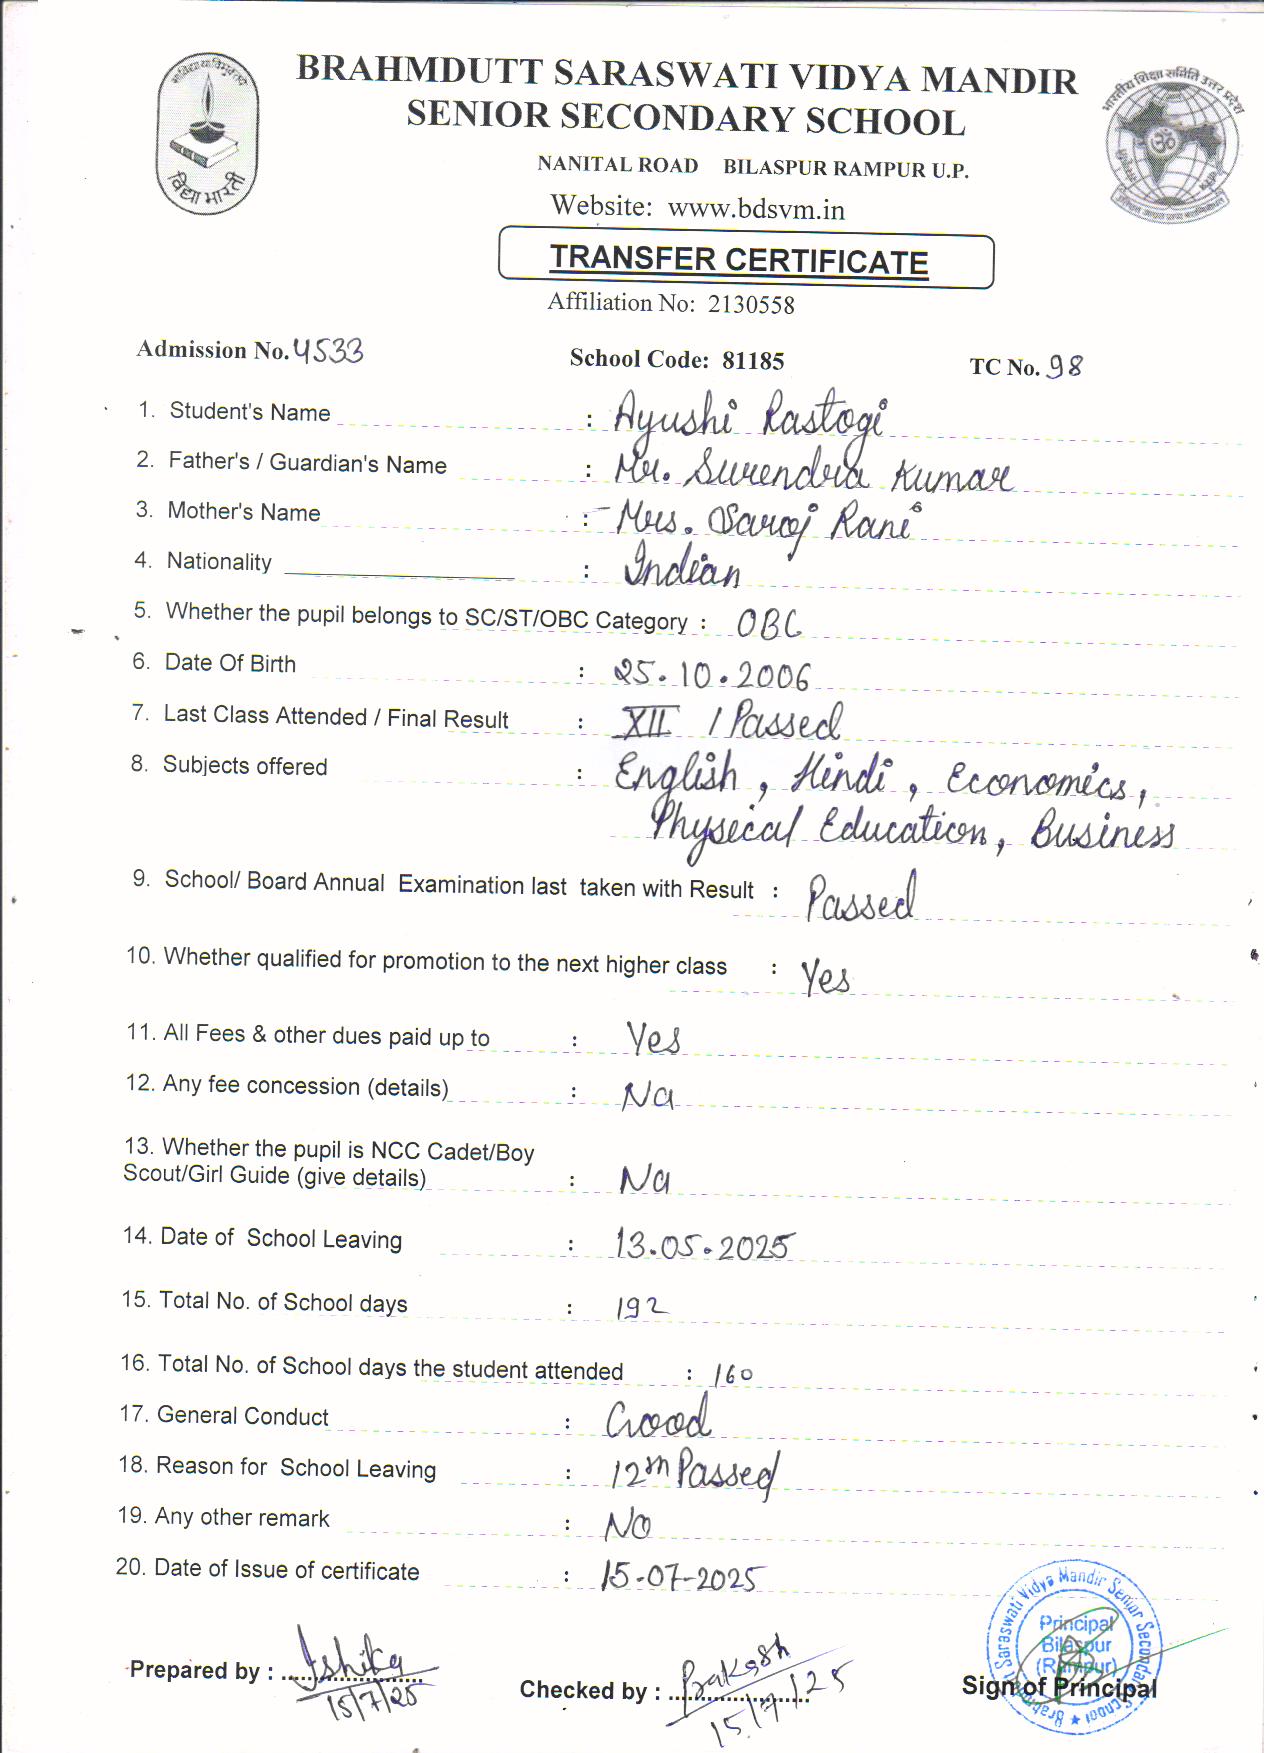 BRAHMDUTT SARASWATI VIDYA MANDIR
SENIOR SECONDARY SCHOOL
NANITAL ROAD BILASPUR RAMPUR U.P.
Website: www.bdsvm.in
विद्या भारती
भारतीय शिक्षा समिति उत्तर प्रदेश
TRANSFER CERTIFICATE
Affiliation No: 2130558
Admission No. 4533 School Code: 81185 TC No. 98
1. Student's Name : Ayushi Rastogi
2. Father's / Guardian's Name : Mr. Surendra Kumar
3. Mother's Name : Mrs. Saroj Rani
4. Nationality : Indian
5. Whether the pupil belongs to SC/ST/OBC Category : OBC
6. Date Of Birth : 25.10.2006
7. Last Class Attended / Final Result : XII / Passed
8. Subjects offered : English, Hindi, Economics,
Physical Education, Business
9. School/ Board Annual Examination last taken with Result : Passed
10. Whether qualified for promotion to the next higher class : Yes
11. All Fees & other dues paid up to : Yes
12. Any fee concession (details) : Na
13. Whether the pupil is NCC Cadet/Boy
Scout/Girl Guide (give details) : Na
14. Date of School Leaving : 13.05.2025
15. Total No. of School days : 192
16. Total No. of School days the student attended : 160
17. General Conduct : Good
18. Reason for School Leaving : 12th Passed
19. Any other remark : NO
20. Date of Issue of certificate : 15-07-2025
Saraswati Vidya Mandir Senior Secondary School
Principal
Bilaspur
(Rampur)
Prepared by : Ishika
15/7/25
Checked by : Prakash
15/7/25
Sign of Principal